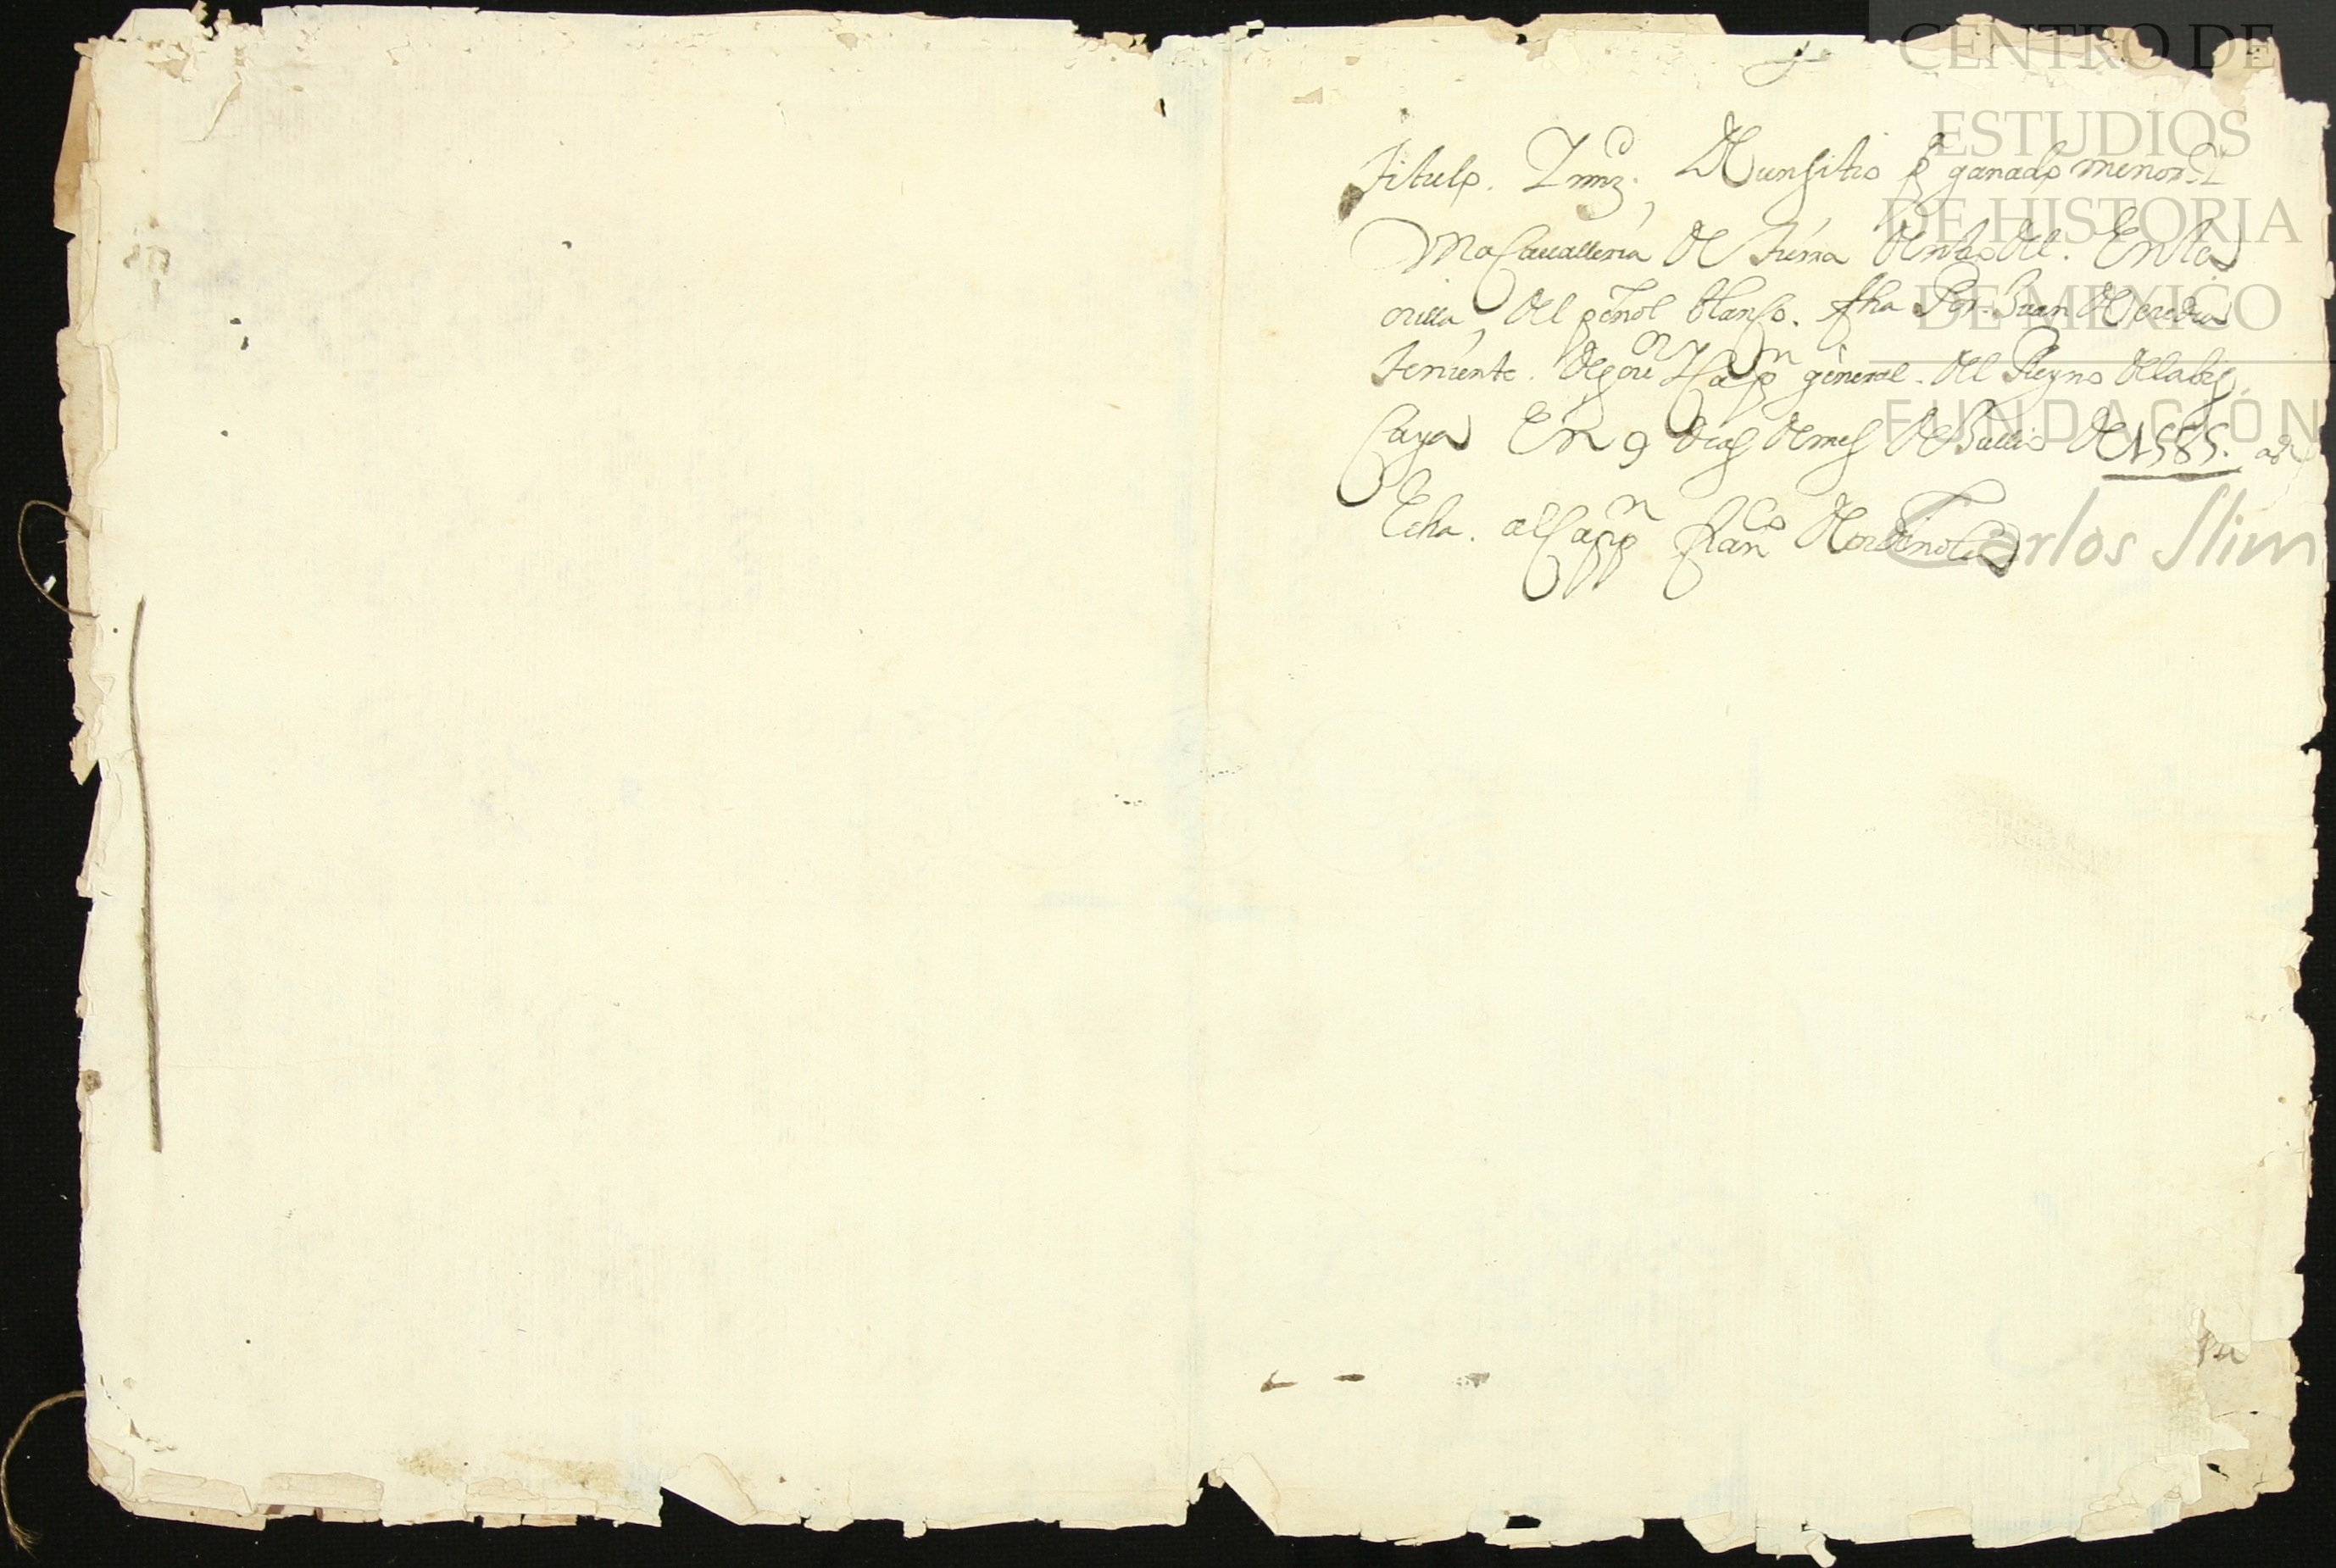 Titulo. Y mrd De un sitio pa ganado menor y
Una Cavalleria de tierra dentro del. En la
orilla, del peñol blanco. fha Por Juan de eredia
teniente. de gouor Y Capn general. del Reyno de la bis
Caya En 9 dias del mes de Jullio de 1585. as
Echa. al Cappn franco de ordiñola
CENTRO DE
ESTUDIOS
DE HISTORIA
DE MEXICO
FUNDACIÓN
Carlos Slim